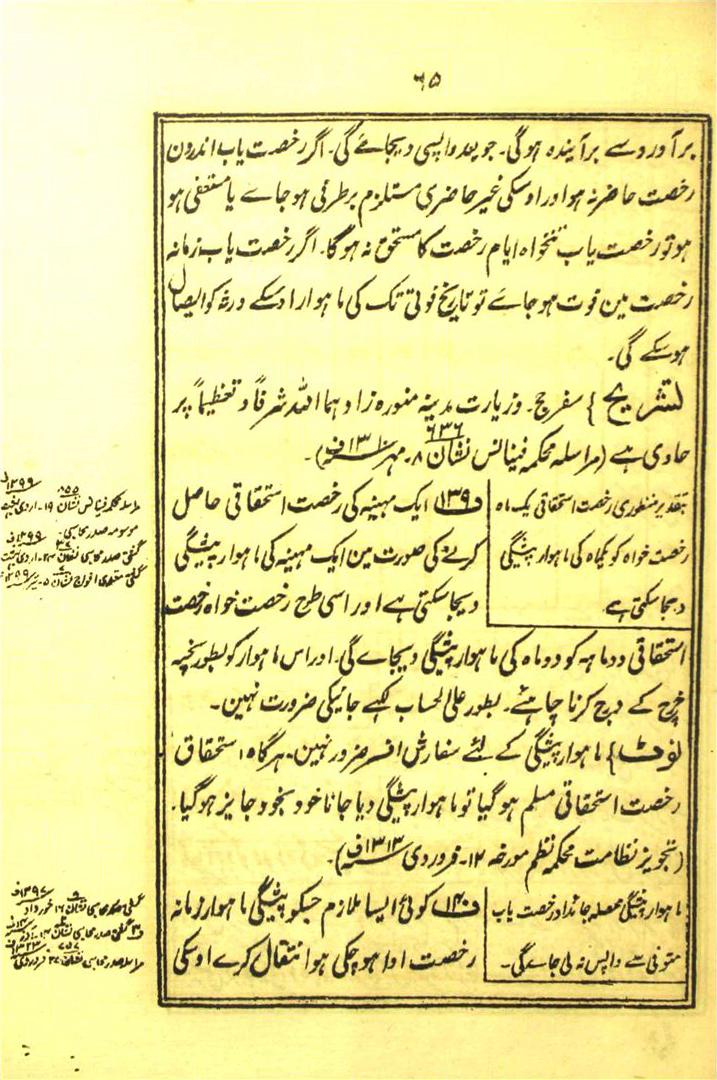 ۶۵
برآورد سے برآیندہ ہوگی۔ جو بعد واپسی دیجائے گی۔ اگر رخصت یاب اندرون
رخصت حاضر نہ ہو اور اوسکی غیر حاضری مستلزم برطرفی ہوجاے یا مستعفی ہو
ہو تو رخصت یاب تنخواہ ایام رخصت کا مستحق نہ ہوگا۔ اگر رخصت یاب زمانہ
رخصت مین فوت ہوجائے تو تاریخ فوتی تک کی ماہوار اوسکے ورثہ کو ایصال
ہوسکے گی۔
تشریح } سفر حج۔ و زیارت مدینہ منورہ زادہما اللہ شرفاً و تعظیماً پر
حاوی ہے (مراسلہ محکمہ فینانس نشان ۶۳۶ ۸۔ مہر ۱۳۱۰ف)۔
بتقدیر منظوری رخصت استحقاقی یک ماہ
رخصت خواہ کو یکماہ کی ماہوار پیشگی
دیجاسکتی ہے
ف۱۳۹ ایک مہینہ کی رخصت استحقاقی حاصل
کرنے کی صورت مین ایک مہینہ کی ماہوار پیشگی
دیجاسکتی ہے اور اسی طرح رخصت خواہ رخصت
استحقاقی دوماہہ کو دو ماہ کی ماہوار پیشگی دیجاے گی۔ اور اس ماہوار کو بطور پختہ
خرچ کے درج کرنا چاہئے۔ بطور علی الحساب لکھے جانیکی ضرورت نہین۔
نوٹ } ماہوار پیشگی کے لئے سفارش افسر ضرور نہین۔ ہرگاہ استحقاق
رخصت استحقاقی مسلم ہوگیا تو ماہوار پیشگی دیا جانا خود بخود جایز ہوگیا۔
(تجویز نظامت محکمہ نظم مورخہ ۱۲۔ فروردی ۱۳۱۳ف)۔
ماہوار پیشگی محصلہ جائداد رخصت یاب
متوفی سے واپس نہ لی جاے گی۔
ف۱۴۰ کوئی ایسا ملازم جسکو پیشگی ماہوار زمانہ
رخصت ادا ہوچکی ہو انتقال کرے اوسکی
۱۲۹۹ف
مراسلہ محکمہ فینانس نشان ۵۵ ۱۹۔ اردی بہشت
موسومہ صدر محاسبی۔
گشتی صدر محاسبی نشان ۲۴۔ اردی بہشت ۱۲۹۹ف
گشتی معتمدی افواج نشان ۵۔ تیر ۱۲۹۹ف